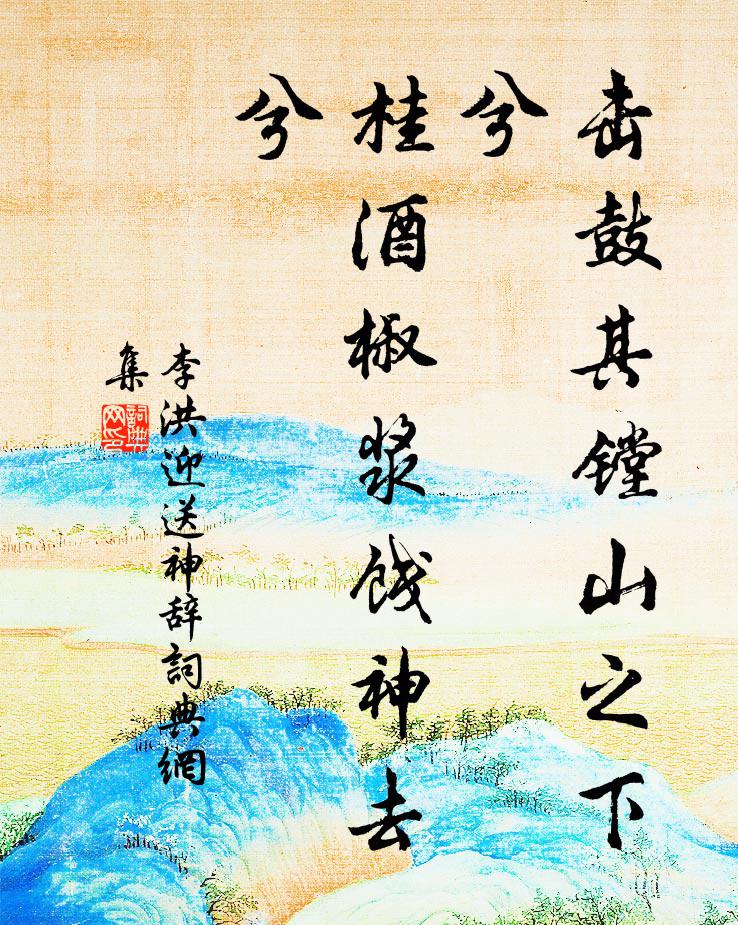 击鼓其镗山之下
兮
桂酒椒浆饯神去
兮
李洪迎送神辞詞典網
集
詞典网印